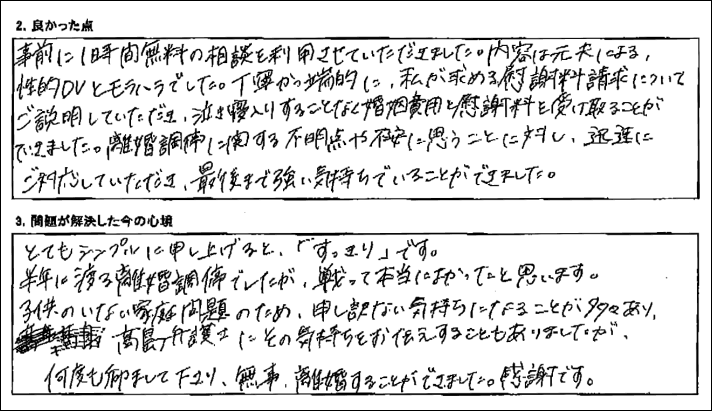 2. 良かった点
事前に1時間無料の相談を利用させていただきました。内容は元夫による、
性的DVとモラハラでした。丁寧かつ端的に、私が求める慰謝料請求について
ご説明していただき、泣き寝入りすることなく婚姻費用と慰謝料を受け取ることが
できました。離婚調停に関する不明点や不安に思うことに対し、迅速に
ご対応していただき、最後まで強い気持ちでいることができました。
3. 問題が解決した今の心境
とてもシンプルに申し上げると、「すっきり」です。
半年に渡る離婚調停でしたが、戦って本当によかったと思います。
子供のいない家庭問題のため、申し訳ない気持ちになることが多々あり、
高島弁護士にその気持ちをお伝えすることもありましたが、
何度も励まして下さり、無事、離婚することができました。感謝です。